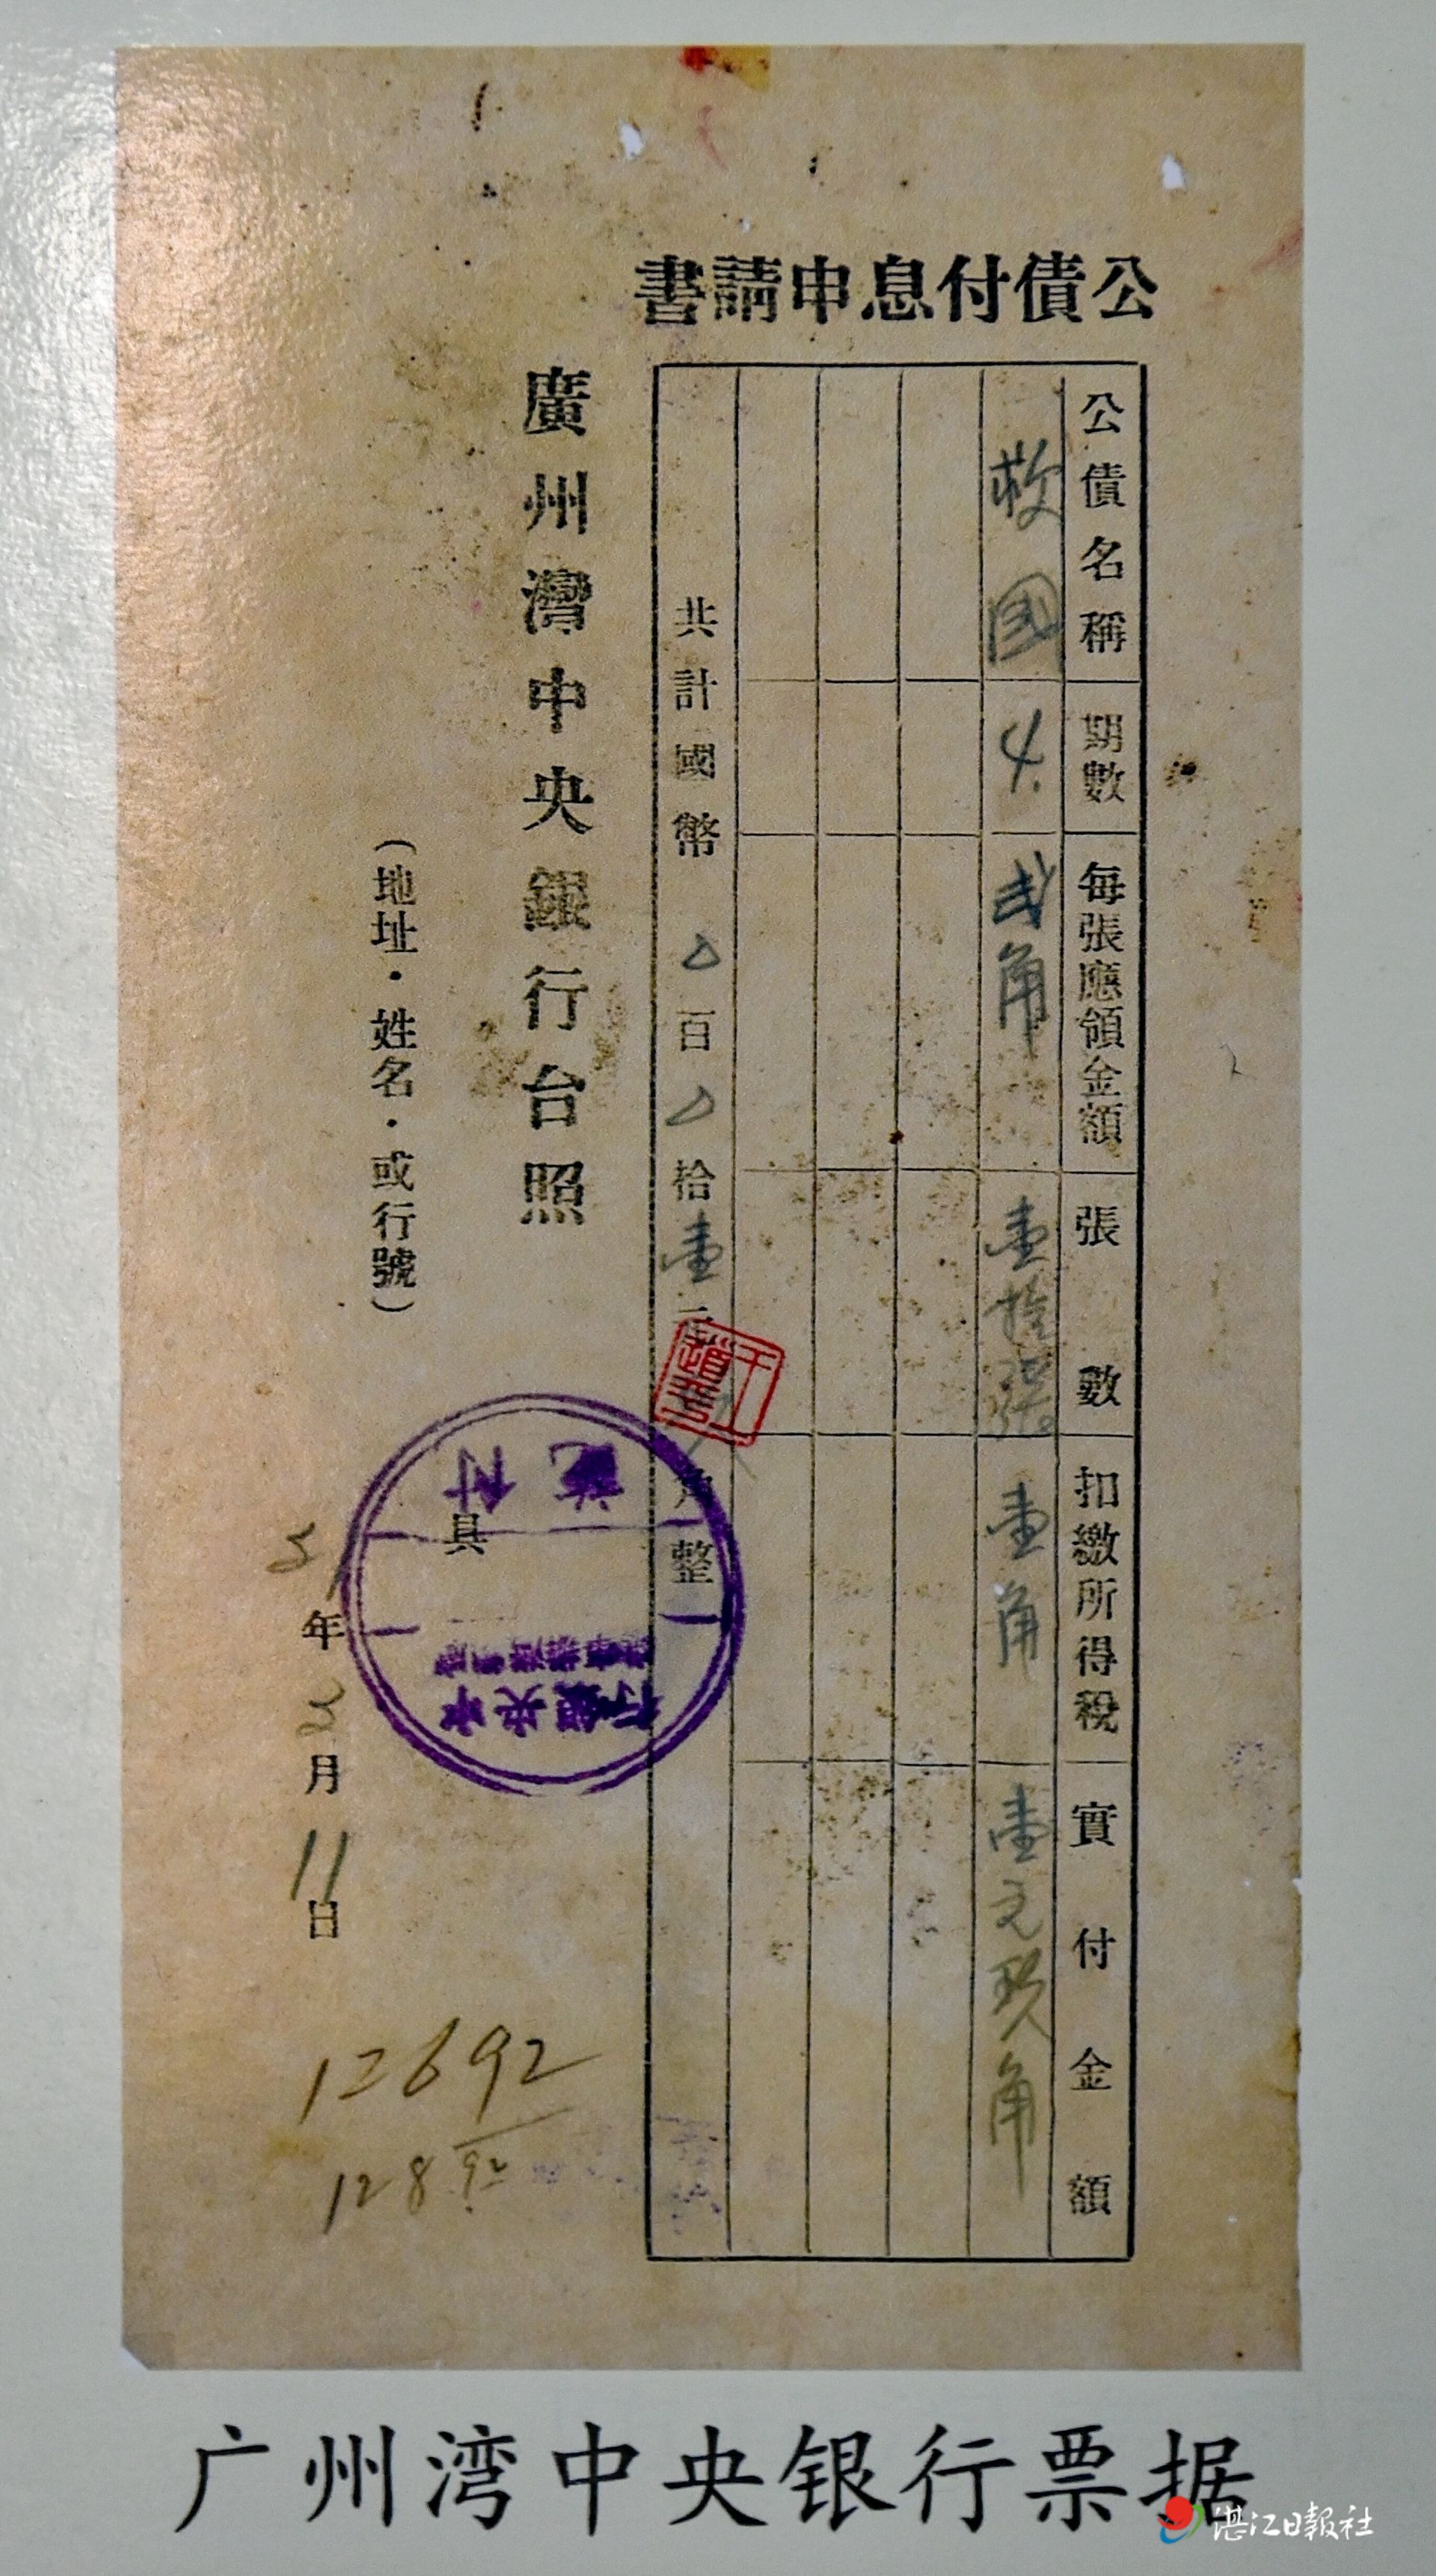 公債付息申請書
公債名稱 期數 每張應領金額 張數 扣繳所得稅 實付金額
救國 4. 貳角 壹拾張 壹角 壹元玖角
共計國幣 0百0拾壹元玖角整
廣州灣中央銀行台照
具
(地址·姓名·或行號)
年2月11日
付訖
中央銀行
12692
128.92
广州湾中央银行票据
湛江日報社